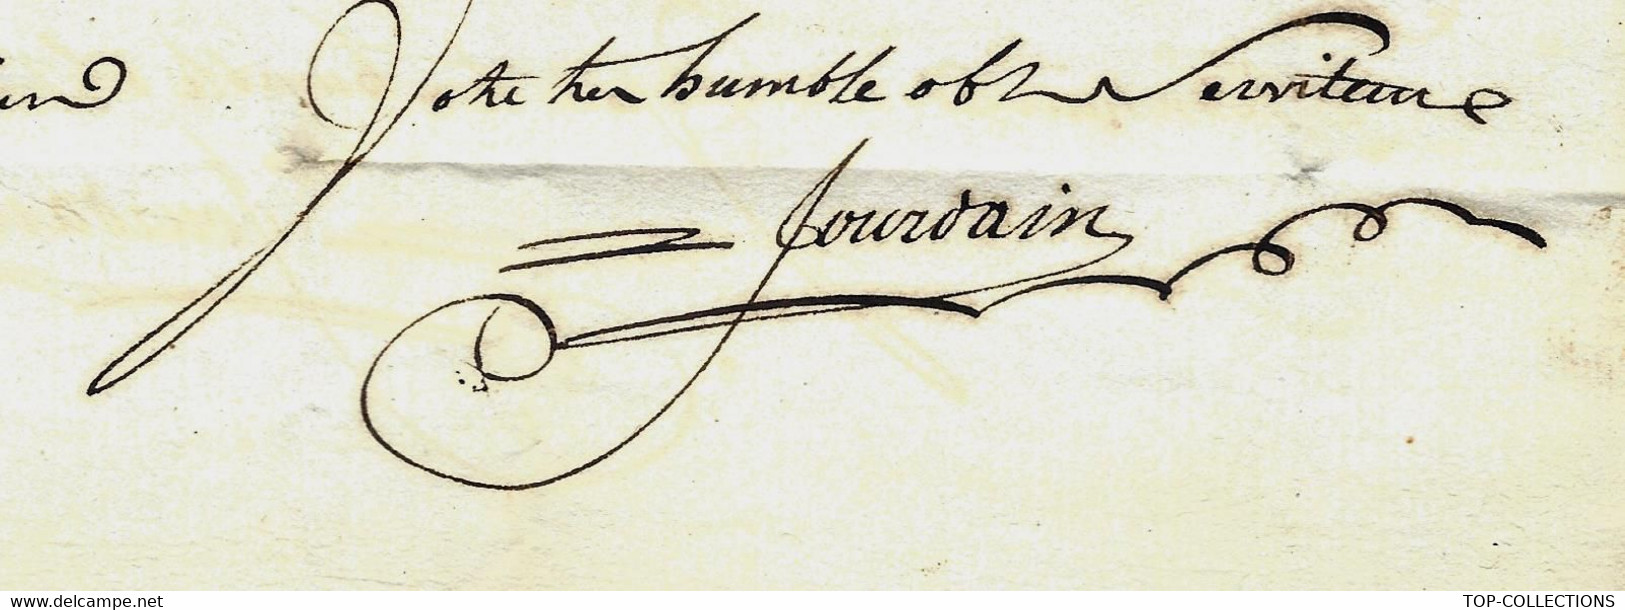 Votre tres humble obt Serviteur
Jourdain
www.delcampe.net
TOP-COLLECTIONS